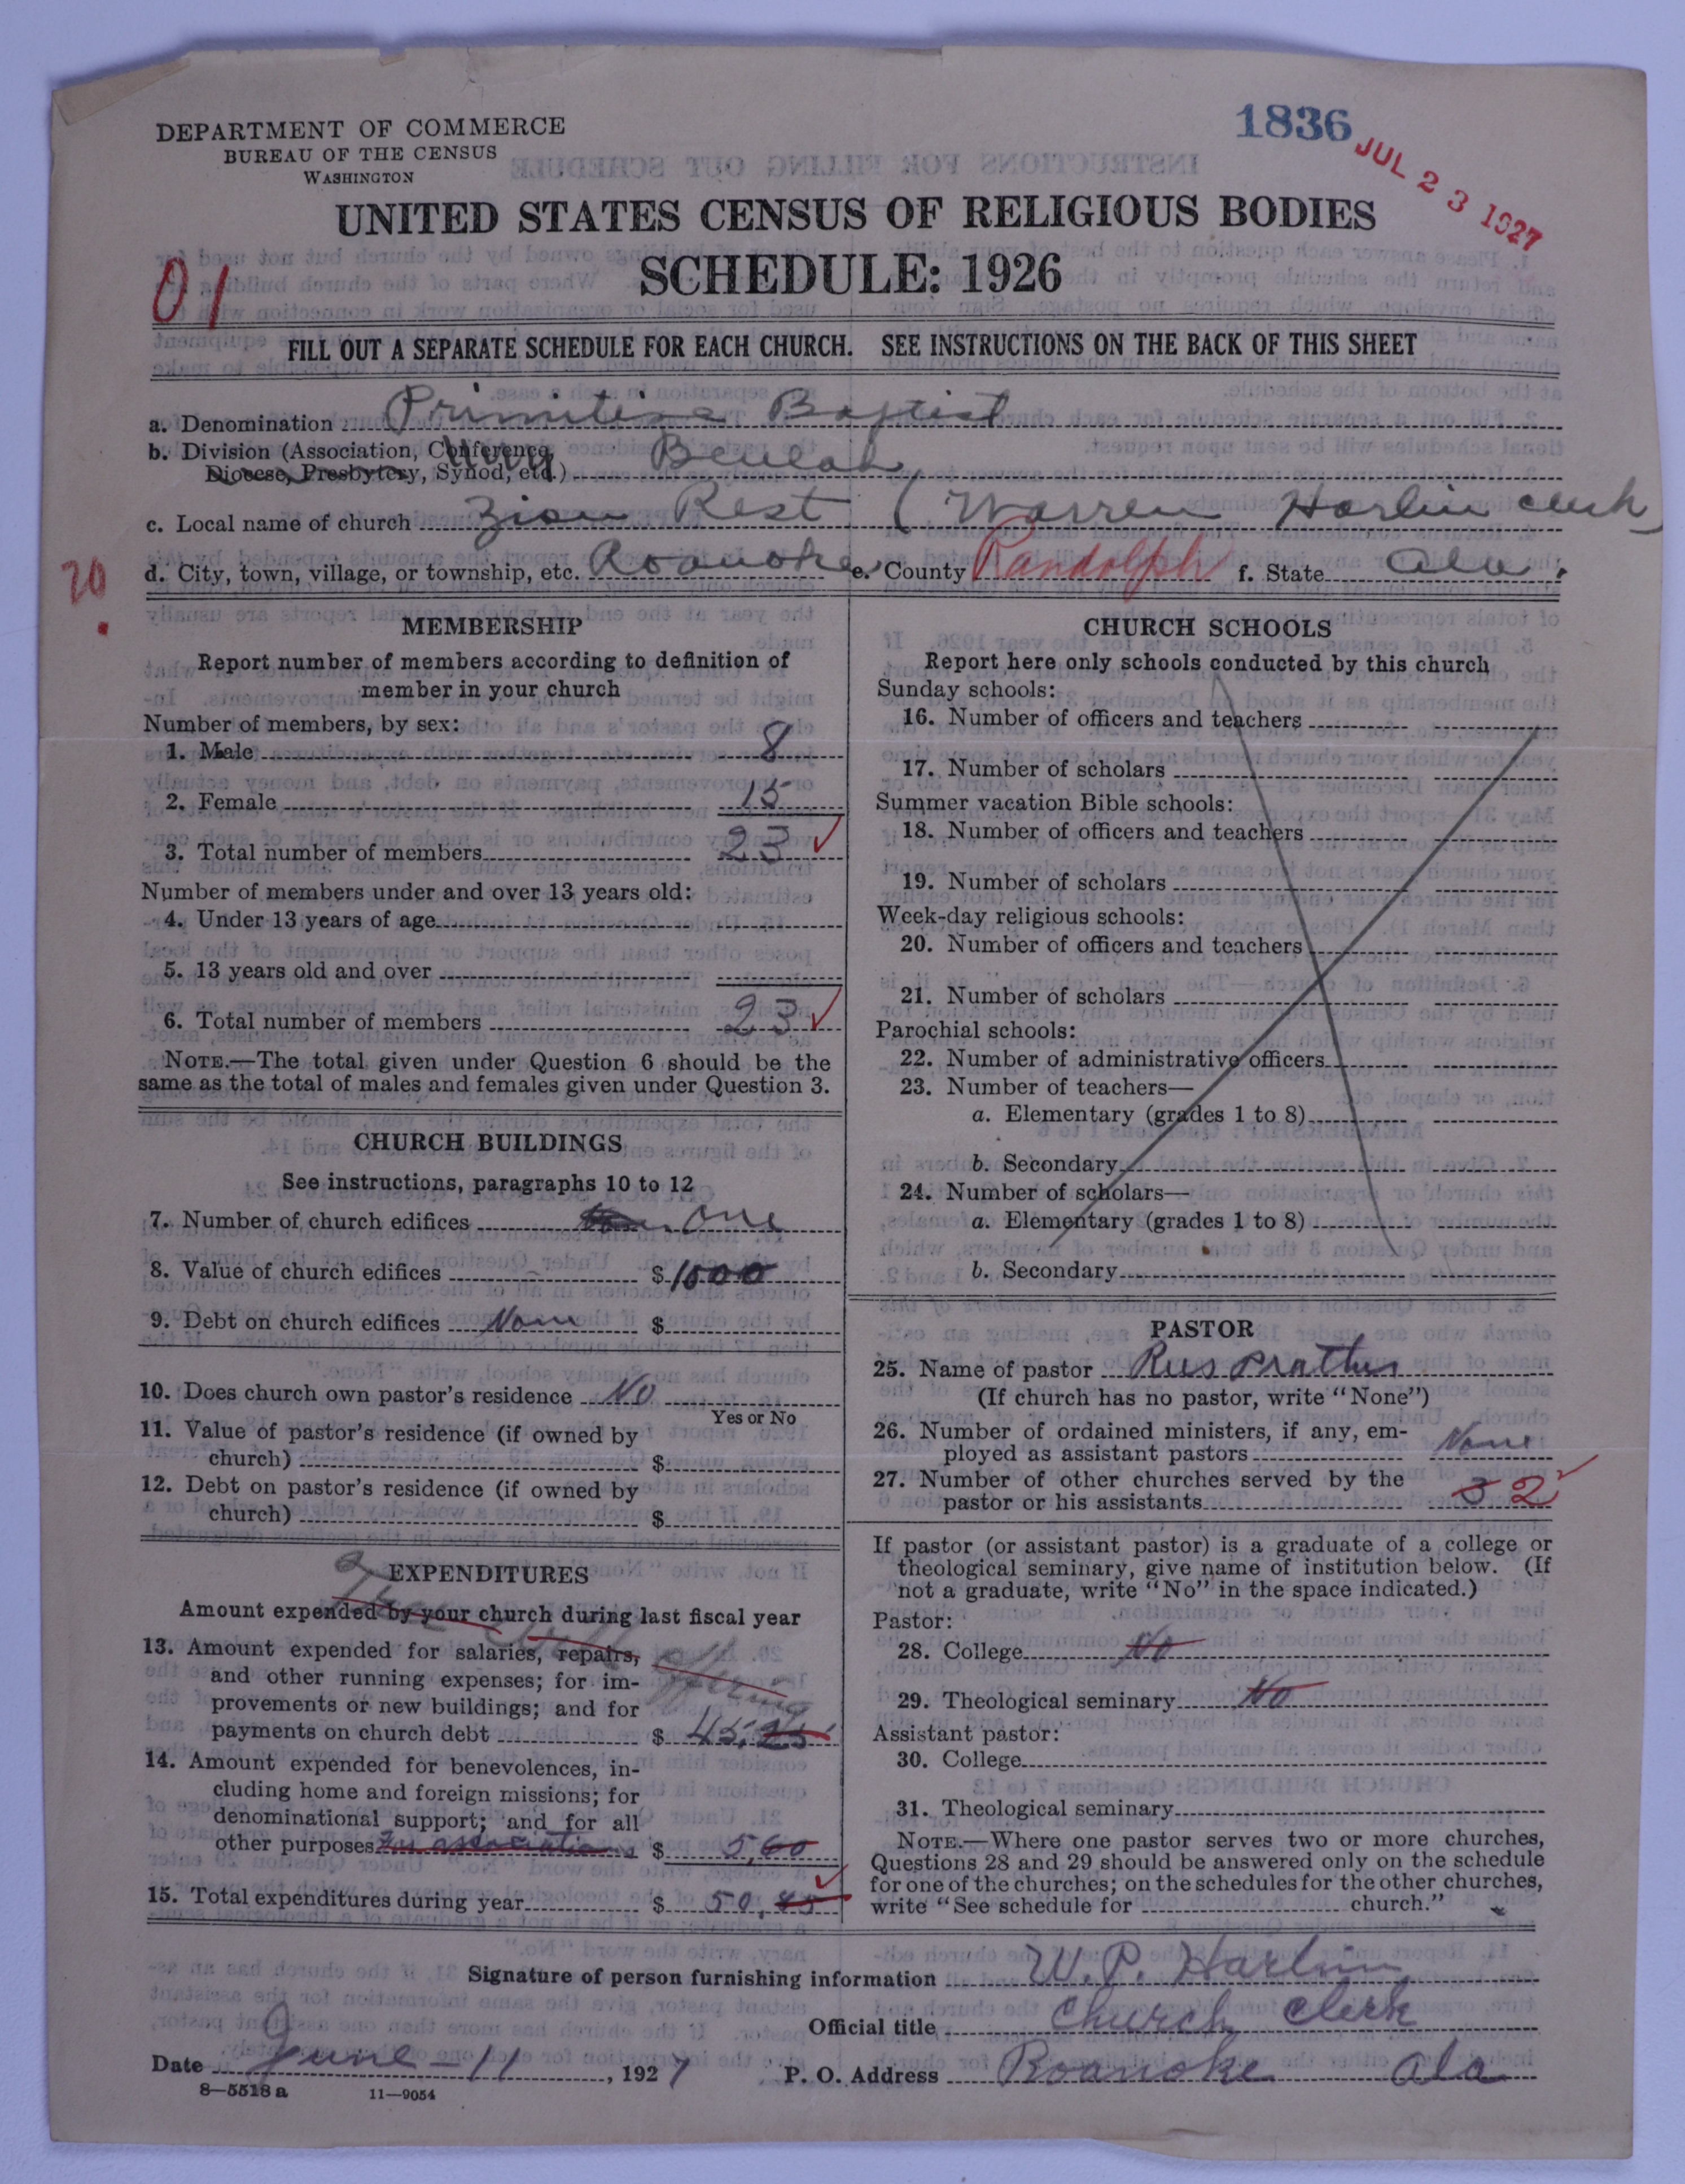 DEPARTMENT OF COMMERCE
BUREAU OF THE CENSUS
WASHINGTON
1836
JUL 23 1927
UNITED STATES CENSUS OF RELIGIOUS BODIES
SCHEDULE: 1926
01
FILL OUT A SEPARATE SCHEDULE FOR EACH CHURCH. SEE INSTRUCTIONS ON THE BACK OF THIS SHEET
a. Denomination Primitive Baptist
b. Division (Association, Conference, Beulah
Diocese, Presbytery, Synod, etc.)
c. Local name of church Zion Rest (Warren Harlin clerk)
20.
d. City, town, village, or township, etc. Roanoke e. County Randolph f. State Ala.
MEMBERSHIP
Report number of members according to definition of
member in your church
Number of members, by sex:
1. Male 8
2. Female 15
3. Total number of members 23
Number of members under and over 13 years old:
4. Under 13 years of age
5. 13 years old and over
6. Total number of members 23
NOTE.—The total given under Question 6 should be the
same as the total of males and females given under Question 3.
CHURCH BUILDINGS
See instructions, paragraphs 10 to 12
7. Number of church edifices one
8. Value of church edifices $ 1000
9. Debt on church edifices None $
10. Does church own pastor's residence No
Yes or No
11. Value of pastor's residence (if owned by
church) $
12. Debt on pastor's residence (if owned by
church) $
EXPENDITURES
Amount expended by your church during last fiscal year
13. Amount expended for salaries, repairs,
and other running expenses; for im-
provements or new buildings; and for
payments on church debt $ 45.25
14. Amount expended for benevolences, in-
cluding home and foreign missions; for
denominational support; and for all
other purposes For association $ 5.60
15. Total expenditures during year $ 50.85
CHURCH SCHOOLS
Report here only schools conducted by this church
Sunday schools:
16. Number of officers and teachers
17. Number of scholars
Summer vacation Bible schools:
18. Number of officers and teachers
19. Number of scholars
Week-day religious schools:
20. Number of officers and teachers
21. Number of scholars
Parochial schools:
22. Number of administrative officers
23. Number of teachers—
a. Elementary (grades 1 to 8)
b. Secondary
24. Number of scholars—
a. Elementary (grades 1 to 8)
b. Secondary
PASTOR
25. Name of pastor Rees Prather
(If church has no pastor, write "None")
26. Number of ordained ministers, if any, em-
ployed as assistant pastors None
27. Number of other churches served by the
pastor or his assistants 3 2
If pastor (or assistant pastor) is a graduate of a college or
theological seminary, give name of institution below. (If
not a graduate, write "No" in the space indicated.)
Pastor:
28. College No
29. Theological seminary No
Assistant pastor:
30. College
31. Theological seminary
NOTE.—Where one pastor serves two or more churches,
Questions 28 and 29 should be answered only on the schedule
for one of the churches; on the schedules for the other churches,
write "See schedule for church."
Signature of person furnishing information W. P. Harlin
Official title Church Clerk
Date June - 11, 1927 P. O. Address Roanoke Ala
8—5518a 11—9054